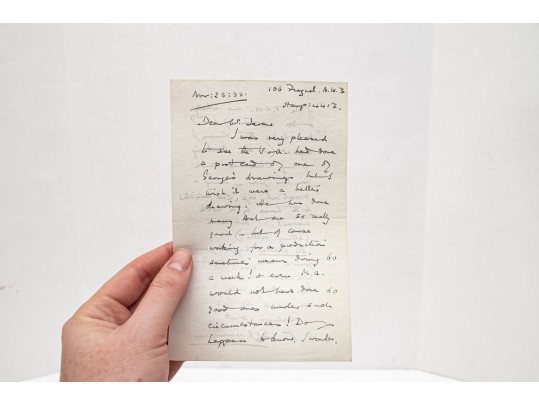 Nov: 23: 36.
106 N.W.3
Hamp: 4413.
Dear Mr
I was very pleased
to see the V. & A. had done
a postcard of one of
George's drawings but I
wish it were a better
drawing. He has done
many that are so really
good – but of course
working for a production
sometimes means doing 60
a week! & even
would not have done 60
good ones under such
circumstances! Do you
happen to know, I wonder,